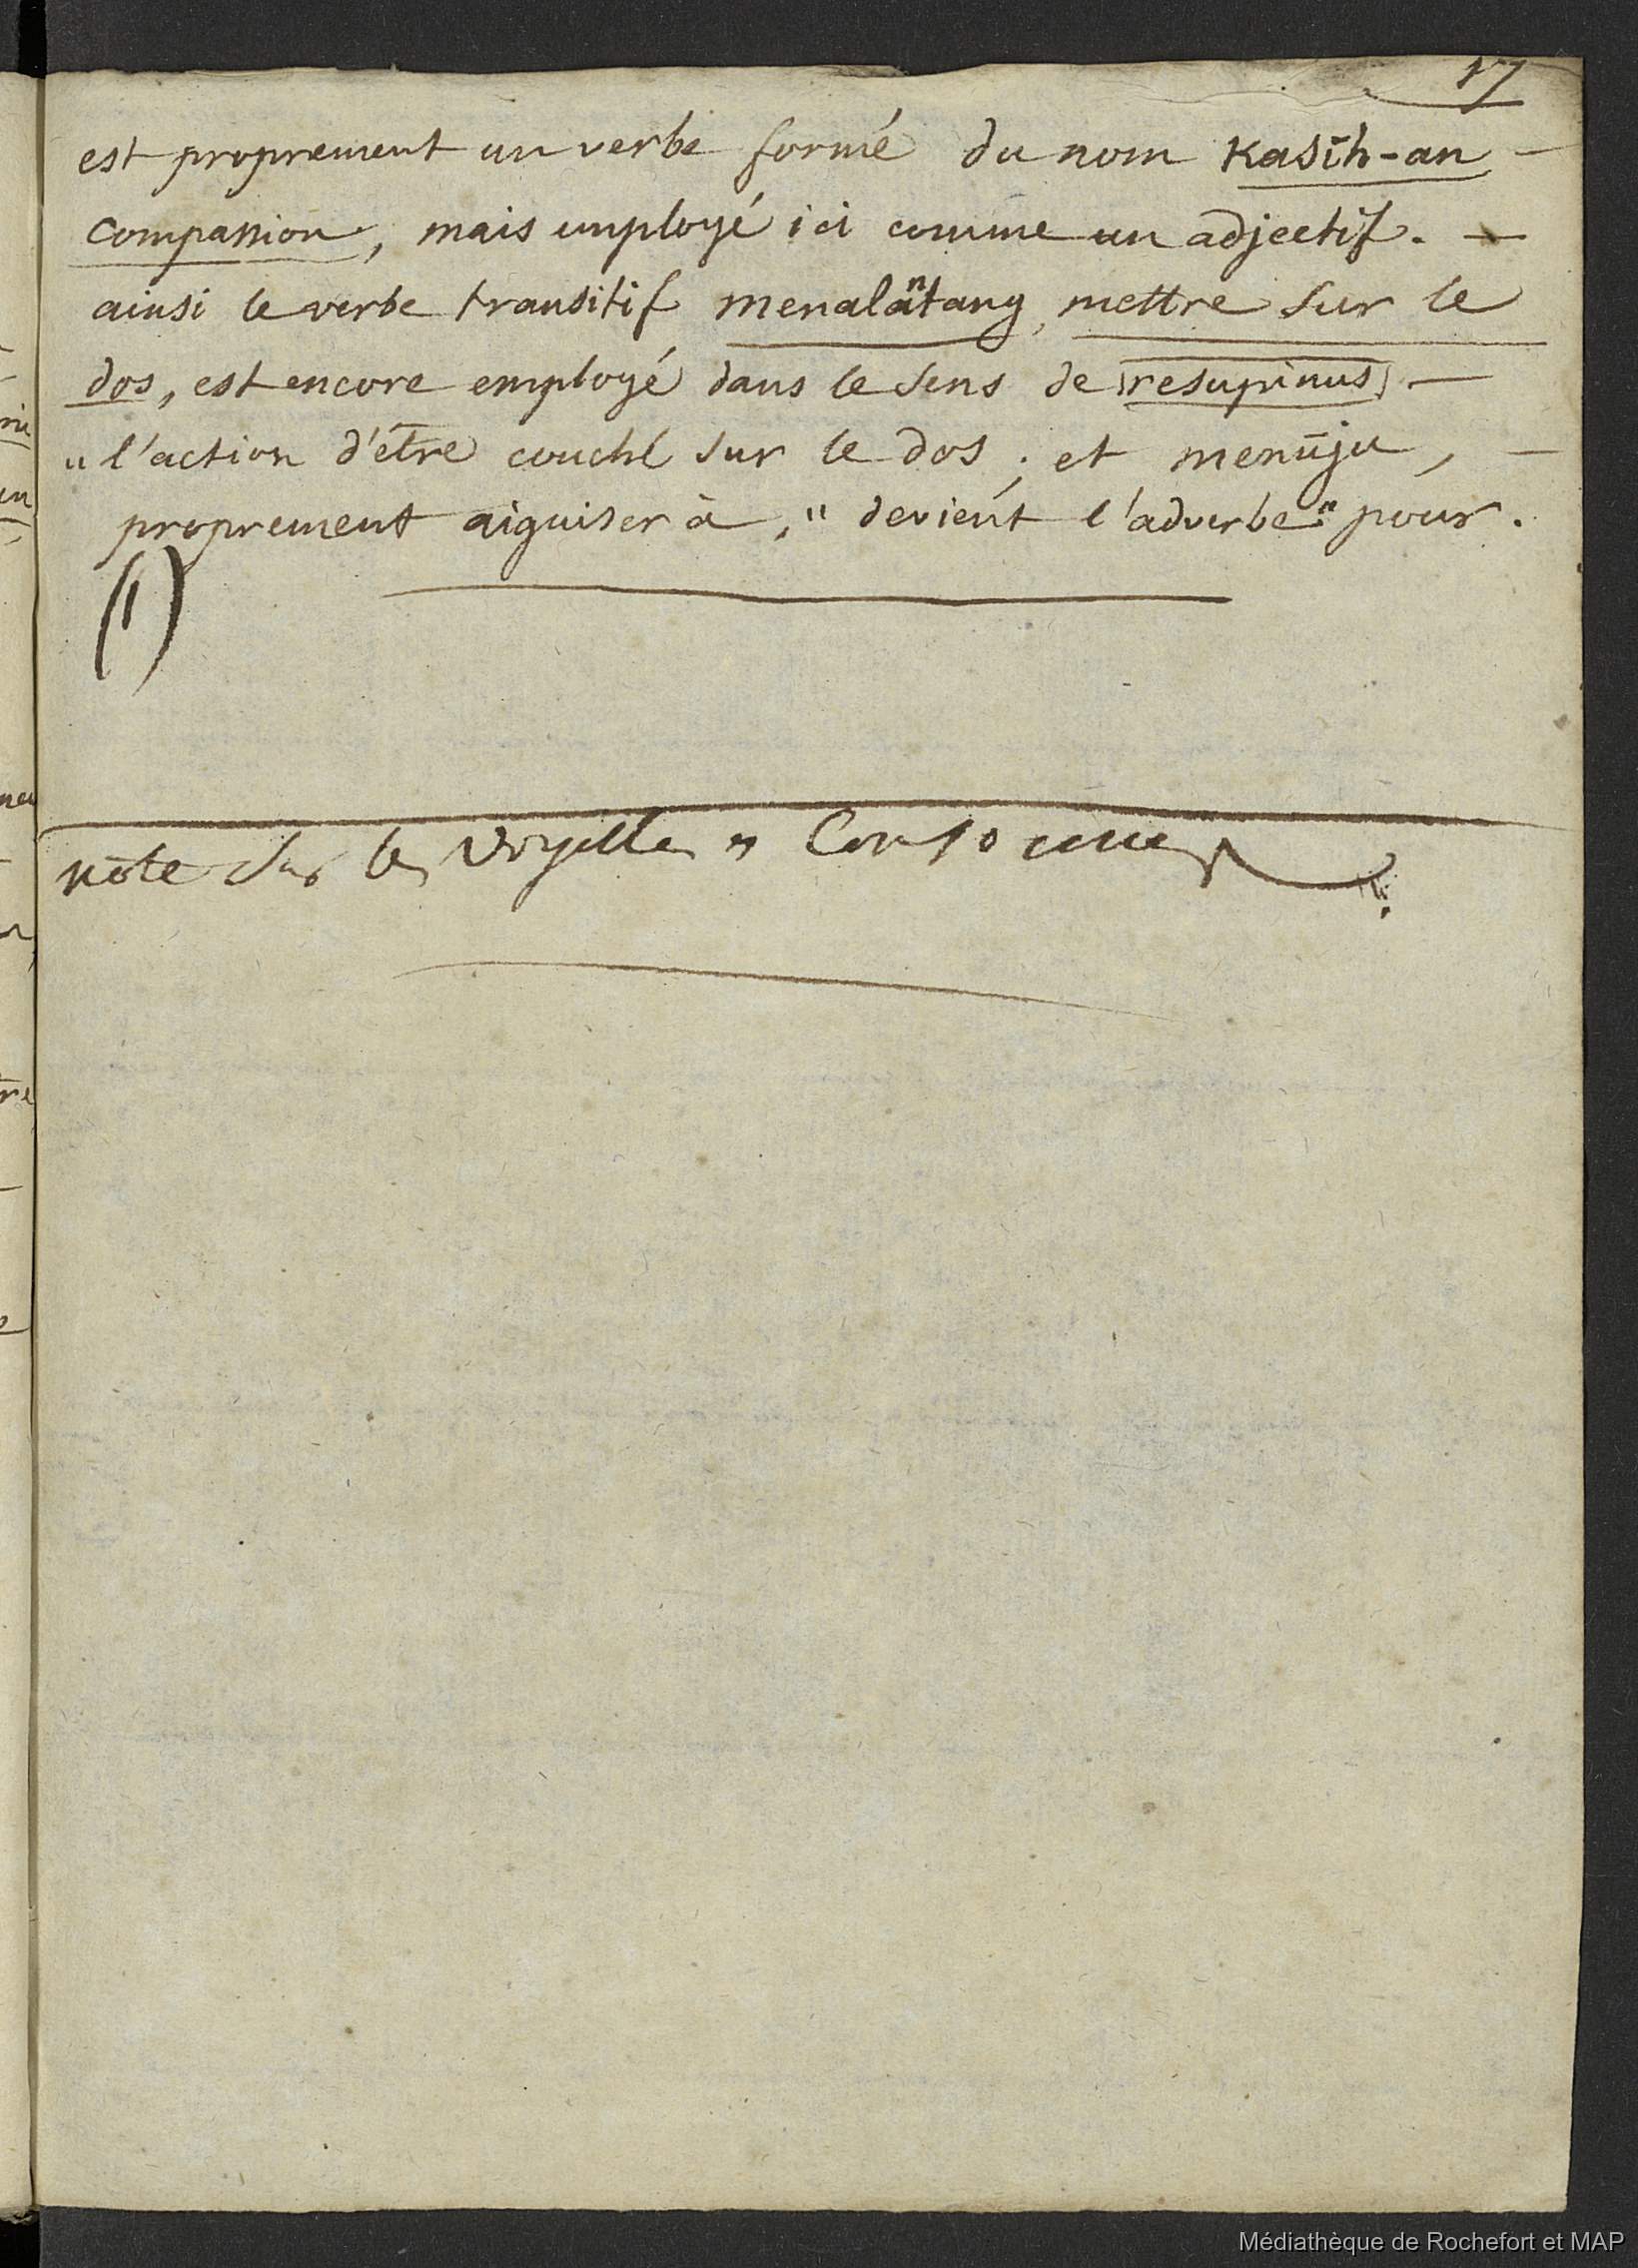 17
est proprement un verbe formé du nom Kasīh-an —
compassion, mais employé ici comme un adjectif. —
ainsi le verbe transitif menalāntang, mettre sur le
dos, est encore employé dans le sens de resupinus —
" l'action d'être couché sur le dos ; et menūju, —
proprement aiguiser à, " devient l'adverbe " pour.
(1)
note sur les voyelles " Consonnes
Médiathèque de Rochefort et MAP